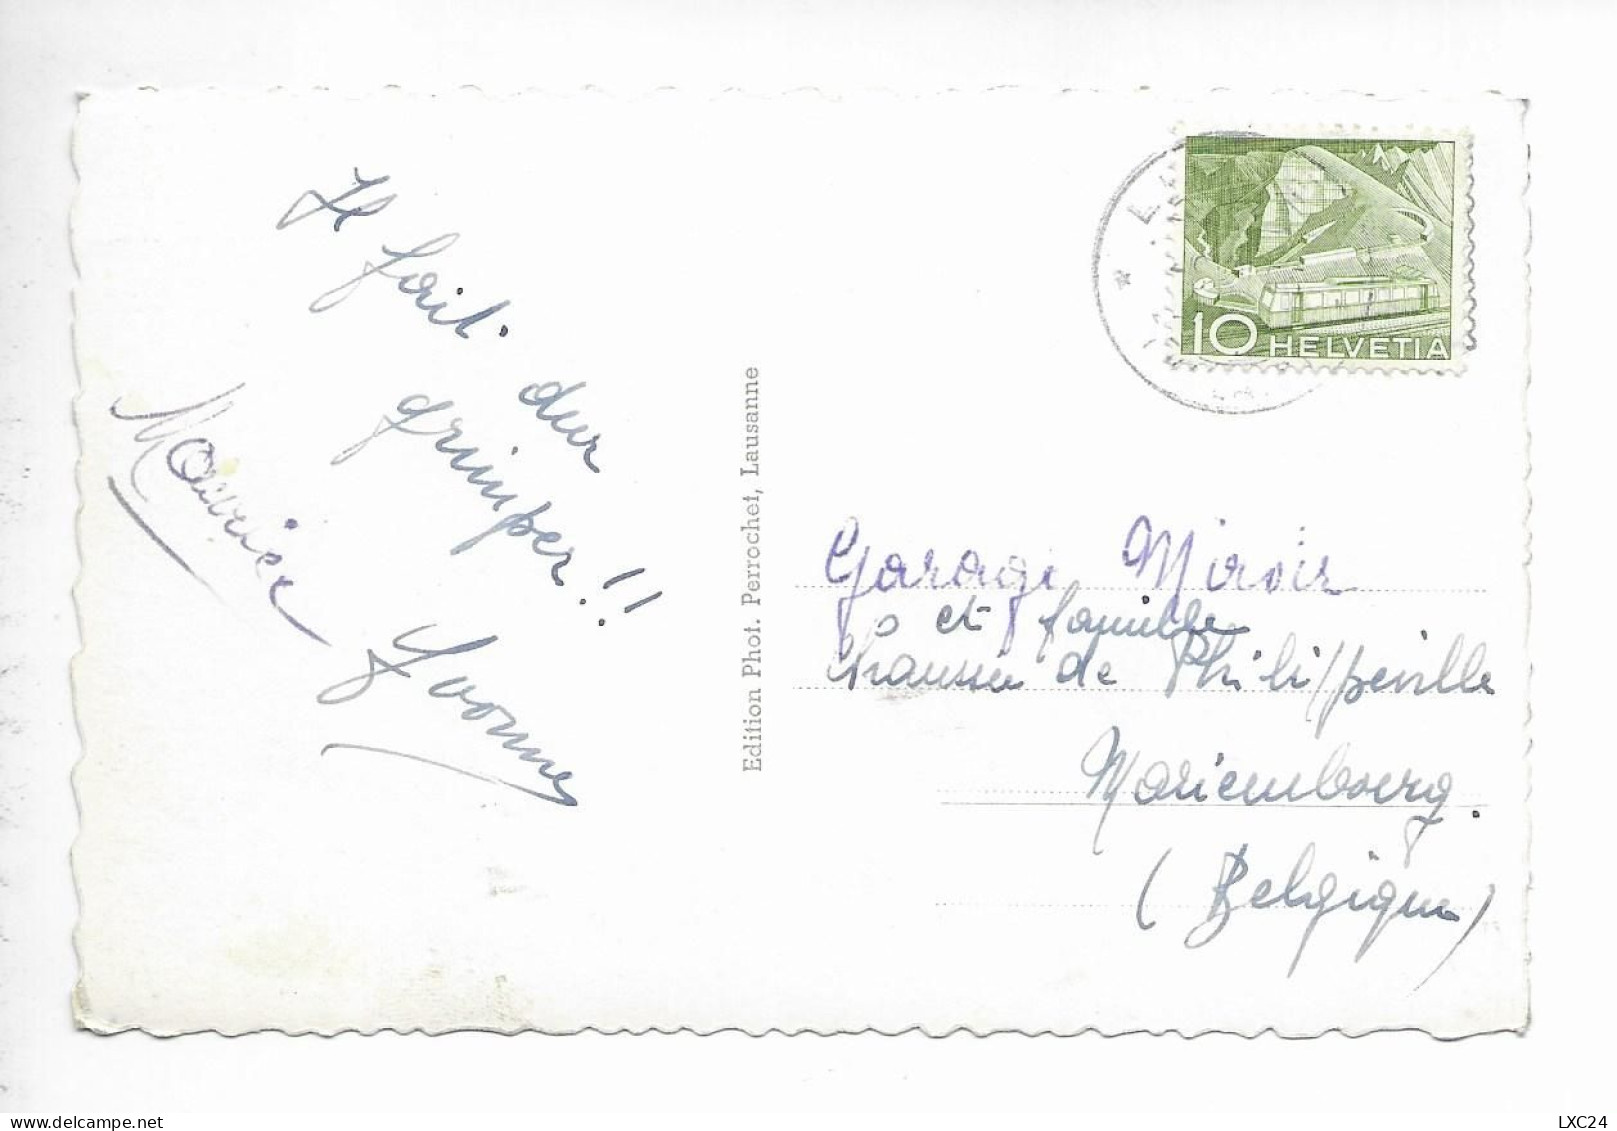 Il fait dur
grimper!!
Maurice
Yvonne
Edition Phot. Perrochet, Lausanne
10 HELVETIA
Garage Miroir
et famille
Chaussée de Philippeville
Mariembourg.
(Belgique)
LXC24